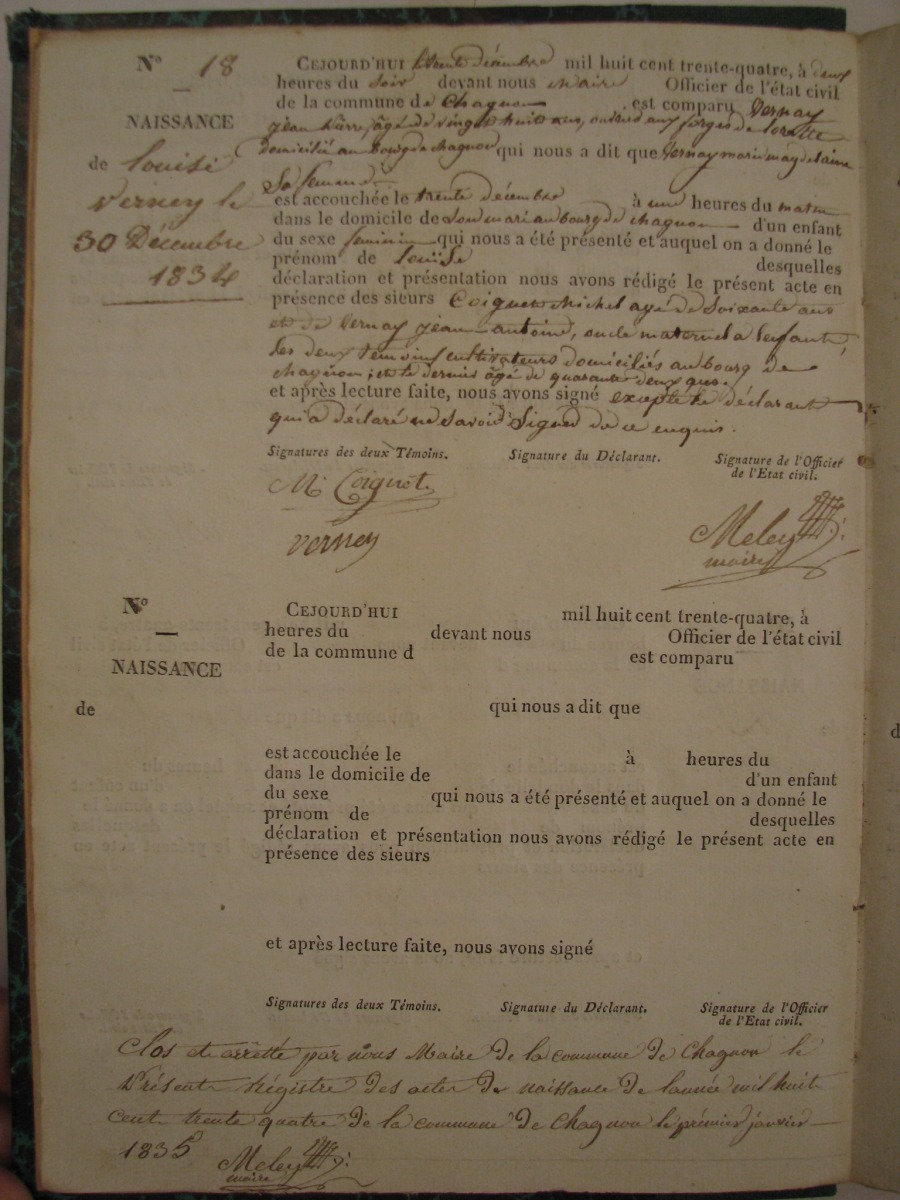 N° 18
NAISSANCE
de louise
verney le
30 Décembre
1834
CEJOURD'HUI trente décembre mil huit cent trente-quatre, à deux
heures du soir devant nous Maire Officier de l'état civil
de la commune de Chagnon est comparu Vernay
jean pierre, âgé de vingt huit ans, aux forges de lorette
domicilié au bourg de chagnon qui nous a dit que Vernay marie magdelaine
Sa femme
est accouchée le trente décembre à une heures du matin
dans le domicile de Son mari au bourg de chagnon d'un enfant
du sexe feminin qui nous a été présenté et auquel on a donné le
prénom de louïse desquelles
déclaration et présentation nous avons rédigé le présent acte en
présence des sieurs Coignet Michel agé de Soixante ans
et de Vernay jean-antoine, oncle maternel a lenfant,
les deux temoins cultivateurs domiciliés au bourg de
chagnon; et le dernier âgé de quarante deux ans
et après lecture faite, nous avons signé excepté le déclarant
qui a déclaré ne Savoir Signer de ce enquis.
Signatures des deux Témoins. Signature du Déclarant. Signature de l'Officier
de l'Etat civil.
M. Coignet
verney
Meley
maire
N°
NAISSANCE
de
CEJOURD'HUI mil huit cent trente-quatre, à
heures du devant nous Officier de l'état civil
de la commune d est comparu
qui nous a dit que
est accouchée le à heures du
dans le domicile de d'un enfant
du sexe qui nous a été présenté et auquel on a donné le
prénom de desquelles
déclaration et présentation nous avons rédigé le présent acte en
présence des sieurs
et après lecture faite, nous avons signé
Signatures des deux Témoins. Signature du Déclarant. Signature de l'Officier
de l'Etat civil.
Clos et arrêtté par nous Maire de la commune de Chagnon le
Présent régistre des actes de naissance de lannée mil huit
cent trente quatre de la commune de Chagnon le prémier janvier
1835 Meley
maire